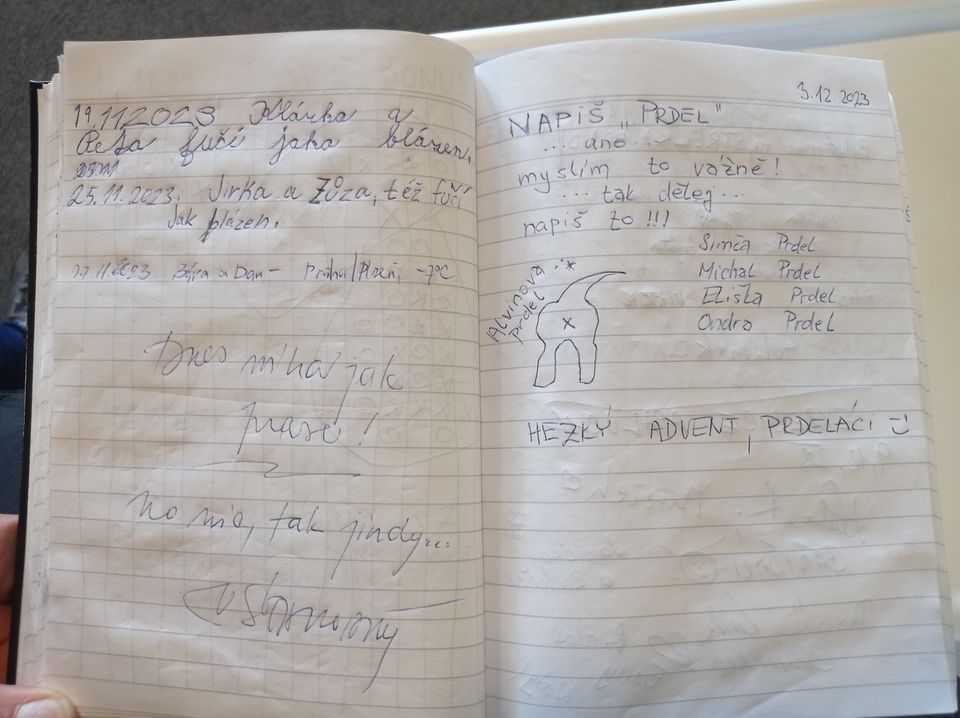 19.11.2023 Klárka a
Péťa fučí jako blázen.
25.11.2023. Jirka a Zůza, též fučí
jak blázen.
11.2023 Bára a Dan – Praha/Plzeň, -7°C
Dnes mlha jak
prase!
no nic, tak jindy...
3.12.2023
NAPIŠ „PRDEL"
...ano...
myslím to vážně!
...tak dělej...
napiš to!!!
Simča Prdel
Michal Prdel
Eliška Prdel
Ondra Prdel
Alvinova
prdel
HEZKÝ ADVENT, PRDELÁCI